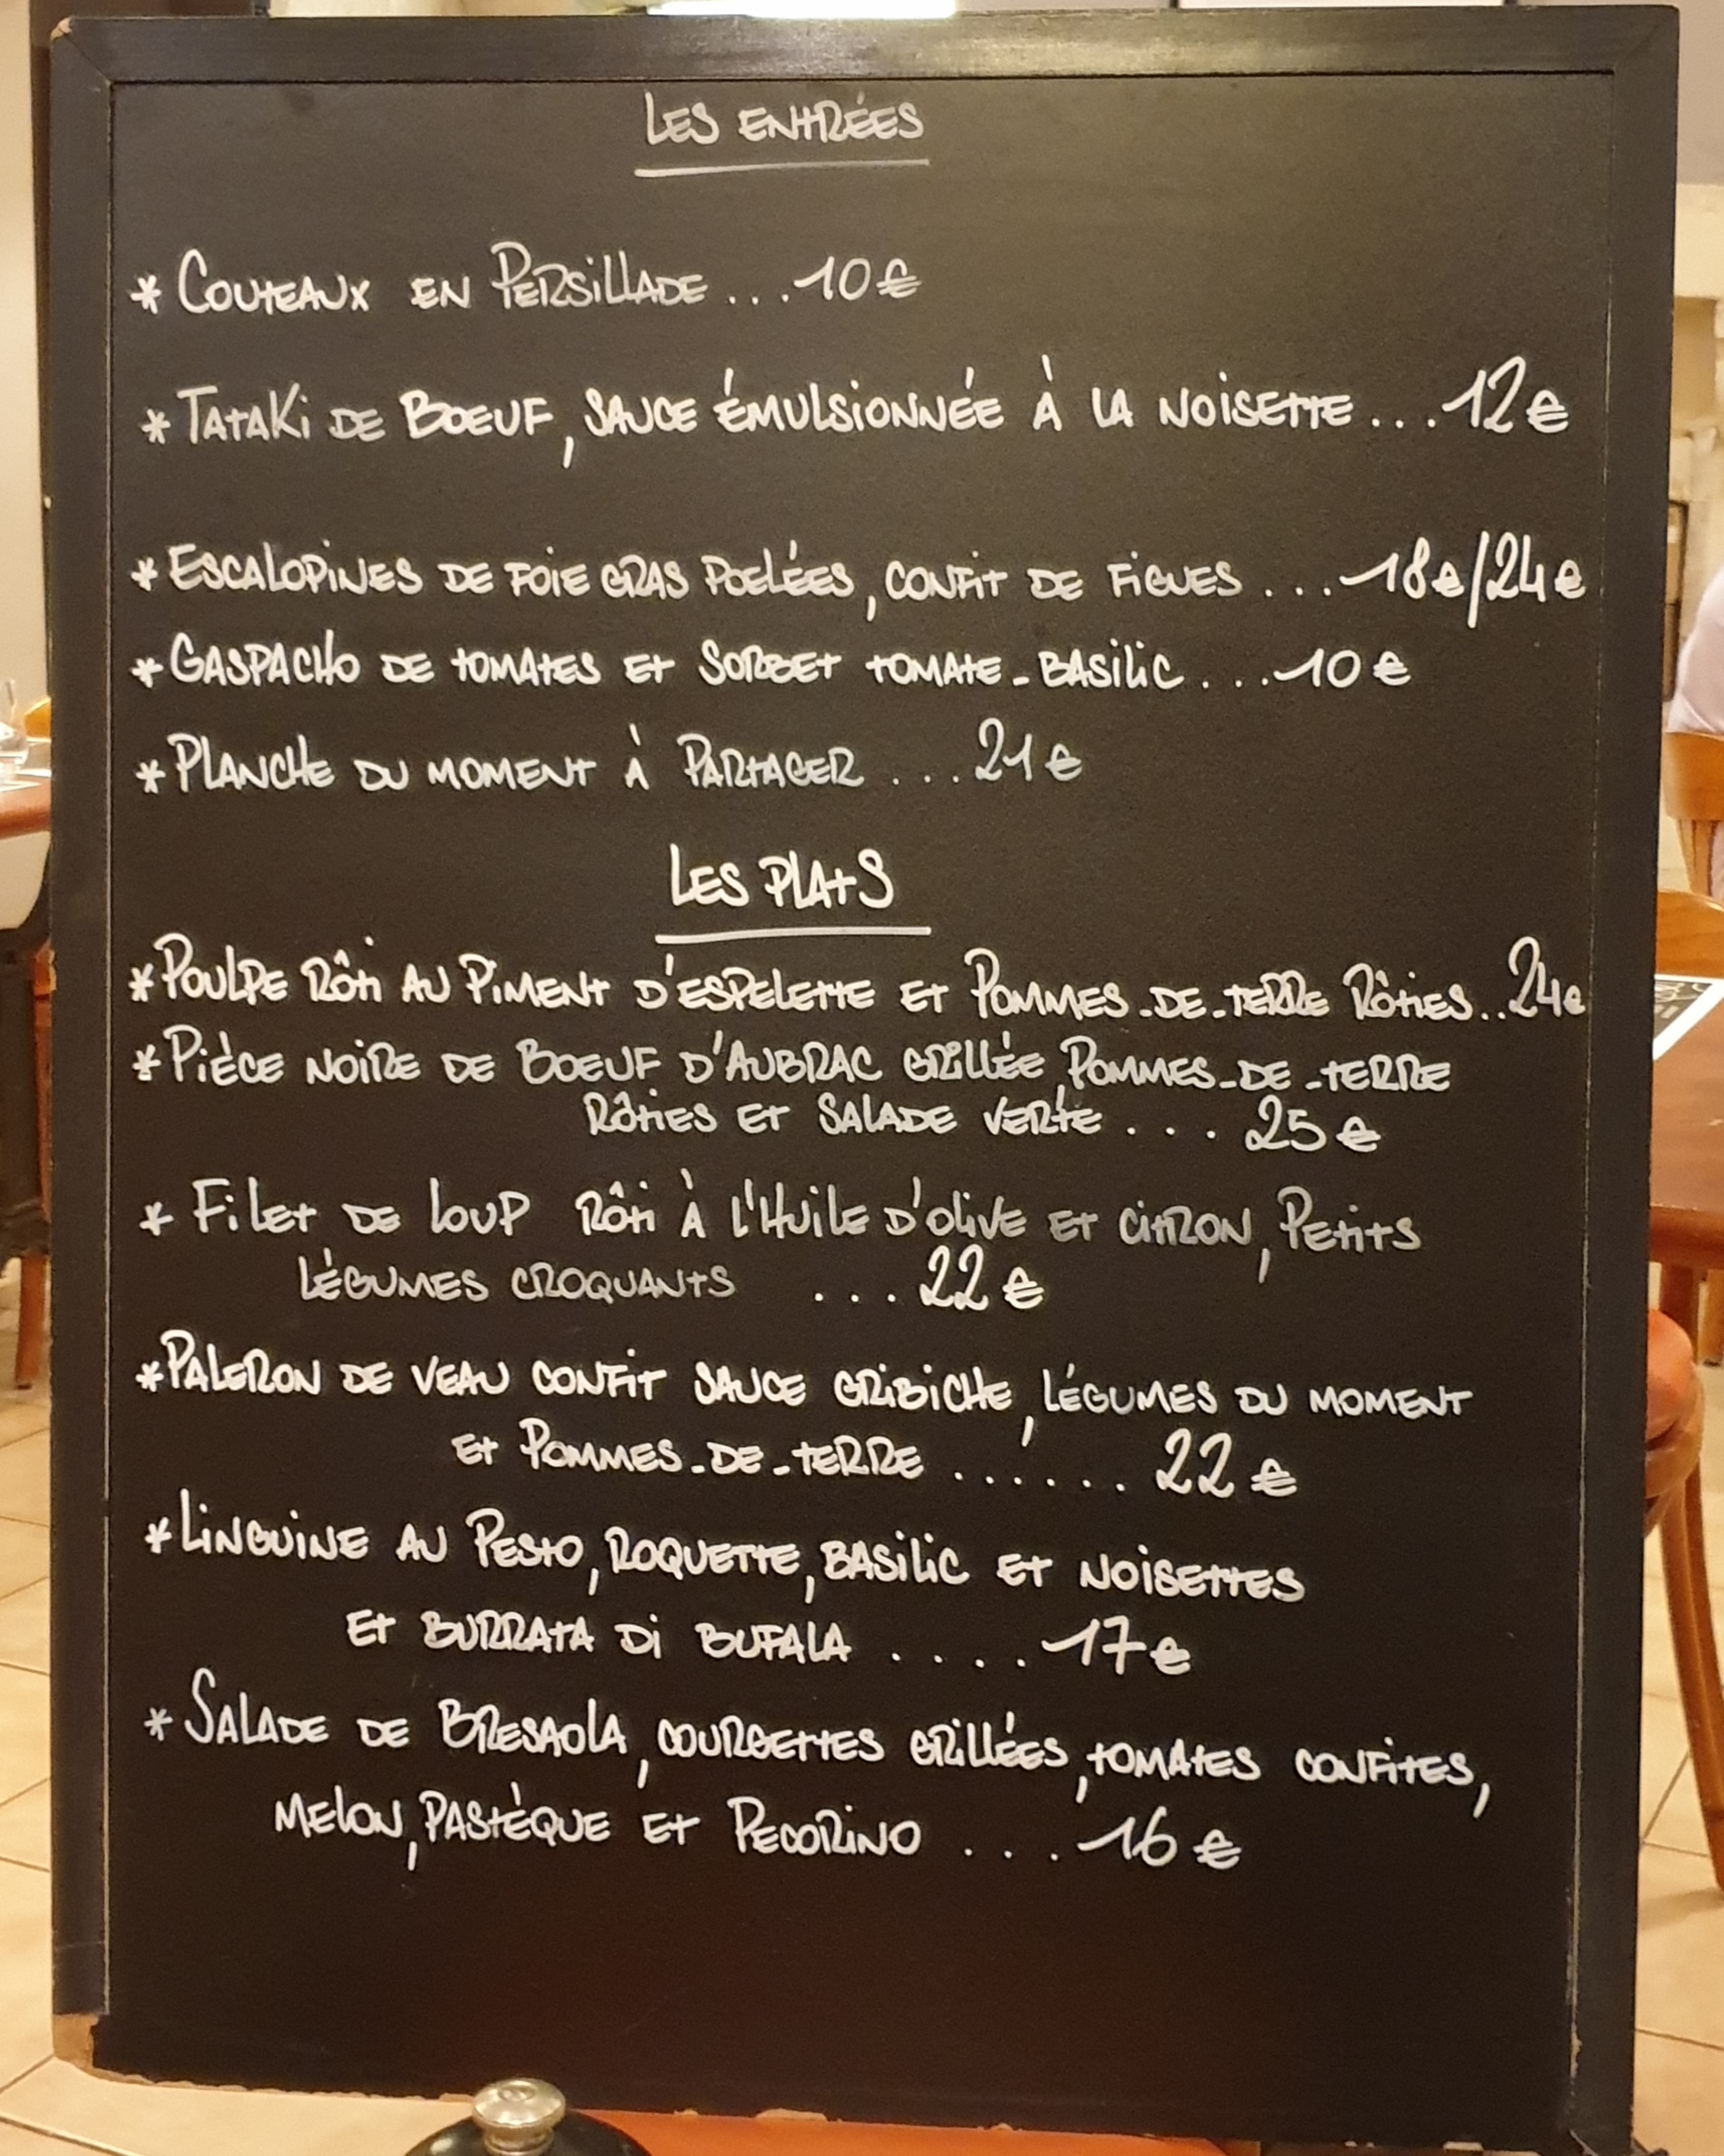 LES ENTRÉES
* COUTEAUX EN PERSILLADE ...10€
* TATAKI DE BOEUF, SAUCE ÉMULSIONNÉE À LA NOISETTE ...12€
* ESCALOPINES DE FOIE GRAS POELÉES, CONFIT DE FIGUES ...18€/24€
* GASPACHO DE TOMATES ET SORBET TOMATE-BASILIC ...10€
* PLANCHE DU MOMENT À PARTAGER ...21€
LES PLATS
* POULPE RÔTI AU PIMENT D'ESPELETTE ET POMMES-DE-TERRE RÔTIES..24€
* PIÈCE NOIRE DE BOEUF D'AUBRAC GRILLÉE, POMMES-DE-TERRE
RÔTIES ET SALADE VERTE ... 25€
* FILET DE LOUP RÔTI À L'HUILE D'OLIVE ET CITRON, PETITS
LÉGUMES CROQUANTS ...22€
* PALERON DE VEAU CONFIT SAUCE GRIBICHE, LÉGUMES DU MOMENT
ET POMMES-DE-TERRE ...... 22€
* LINGUINE AU PESTO, ROQUETTE, BASILIC ET NOISETTES
ET BURRATA DI BUFALA ....17€
* SALADE DE BRESAOLA, COURGETTES GRILLÉES, TOMATES CONFITES,
MELON, PASTÈQUE ET PECORINO ...16€